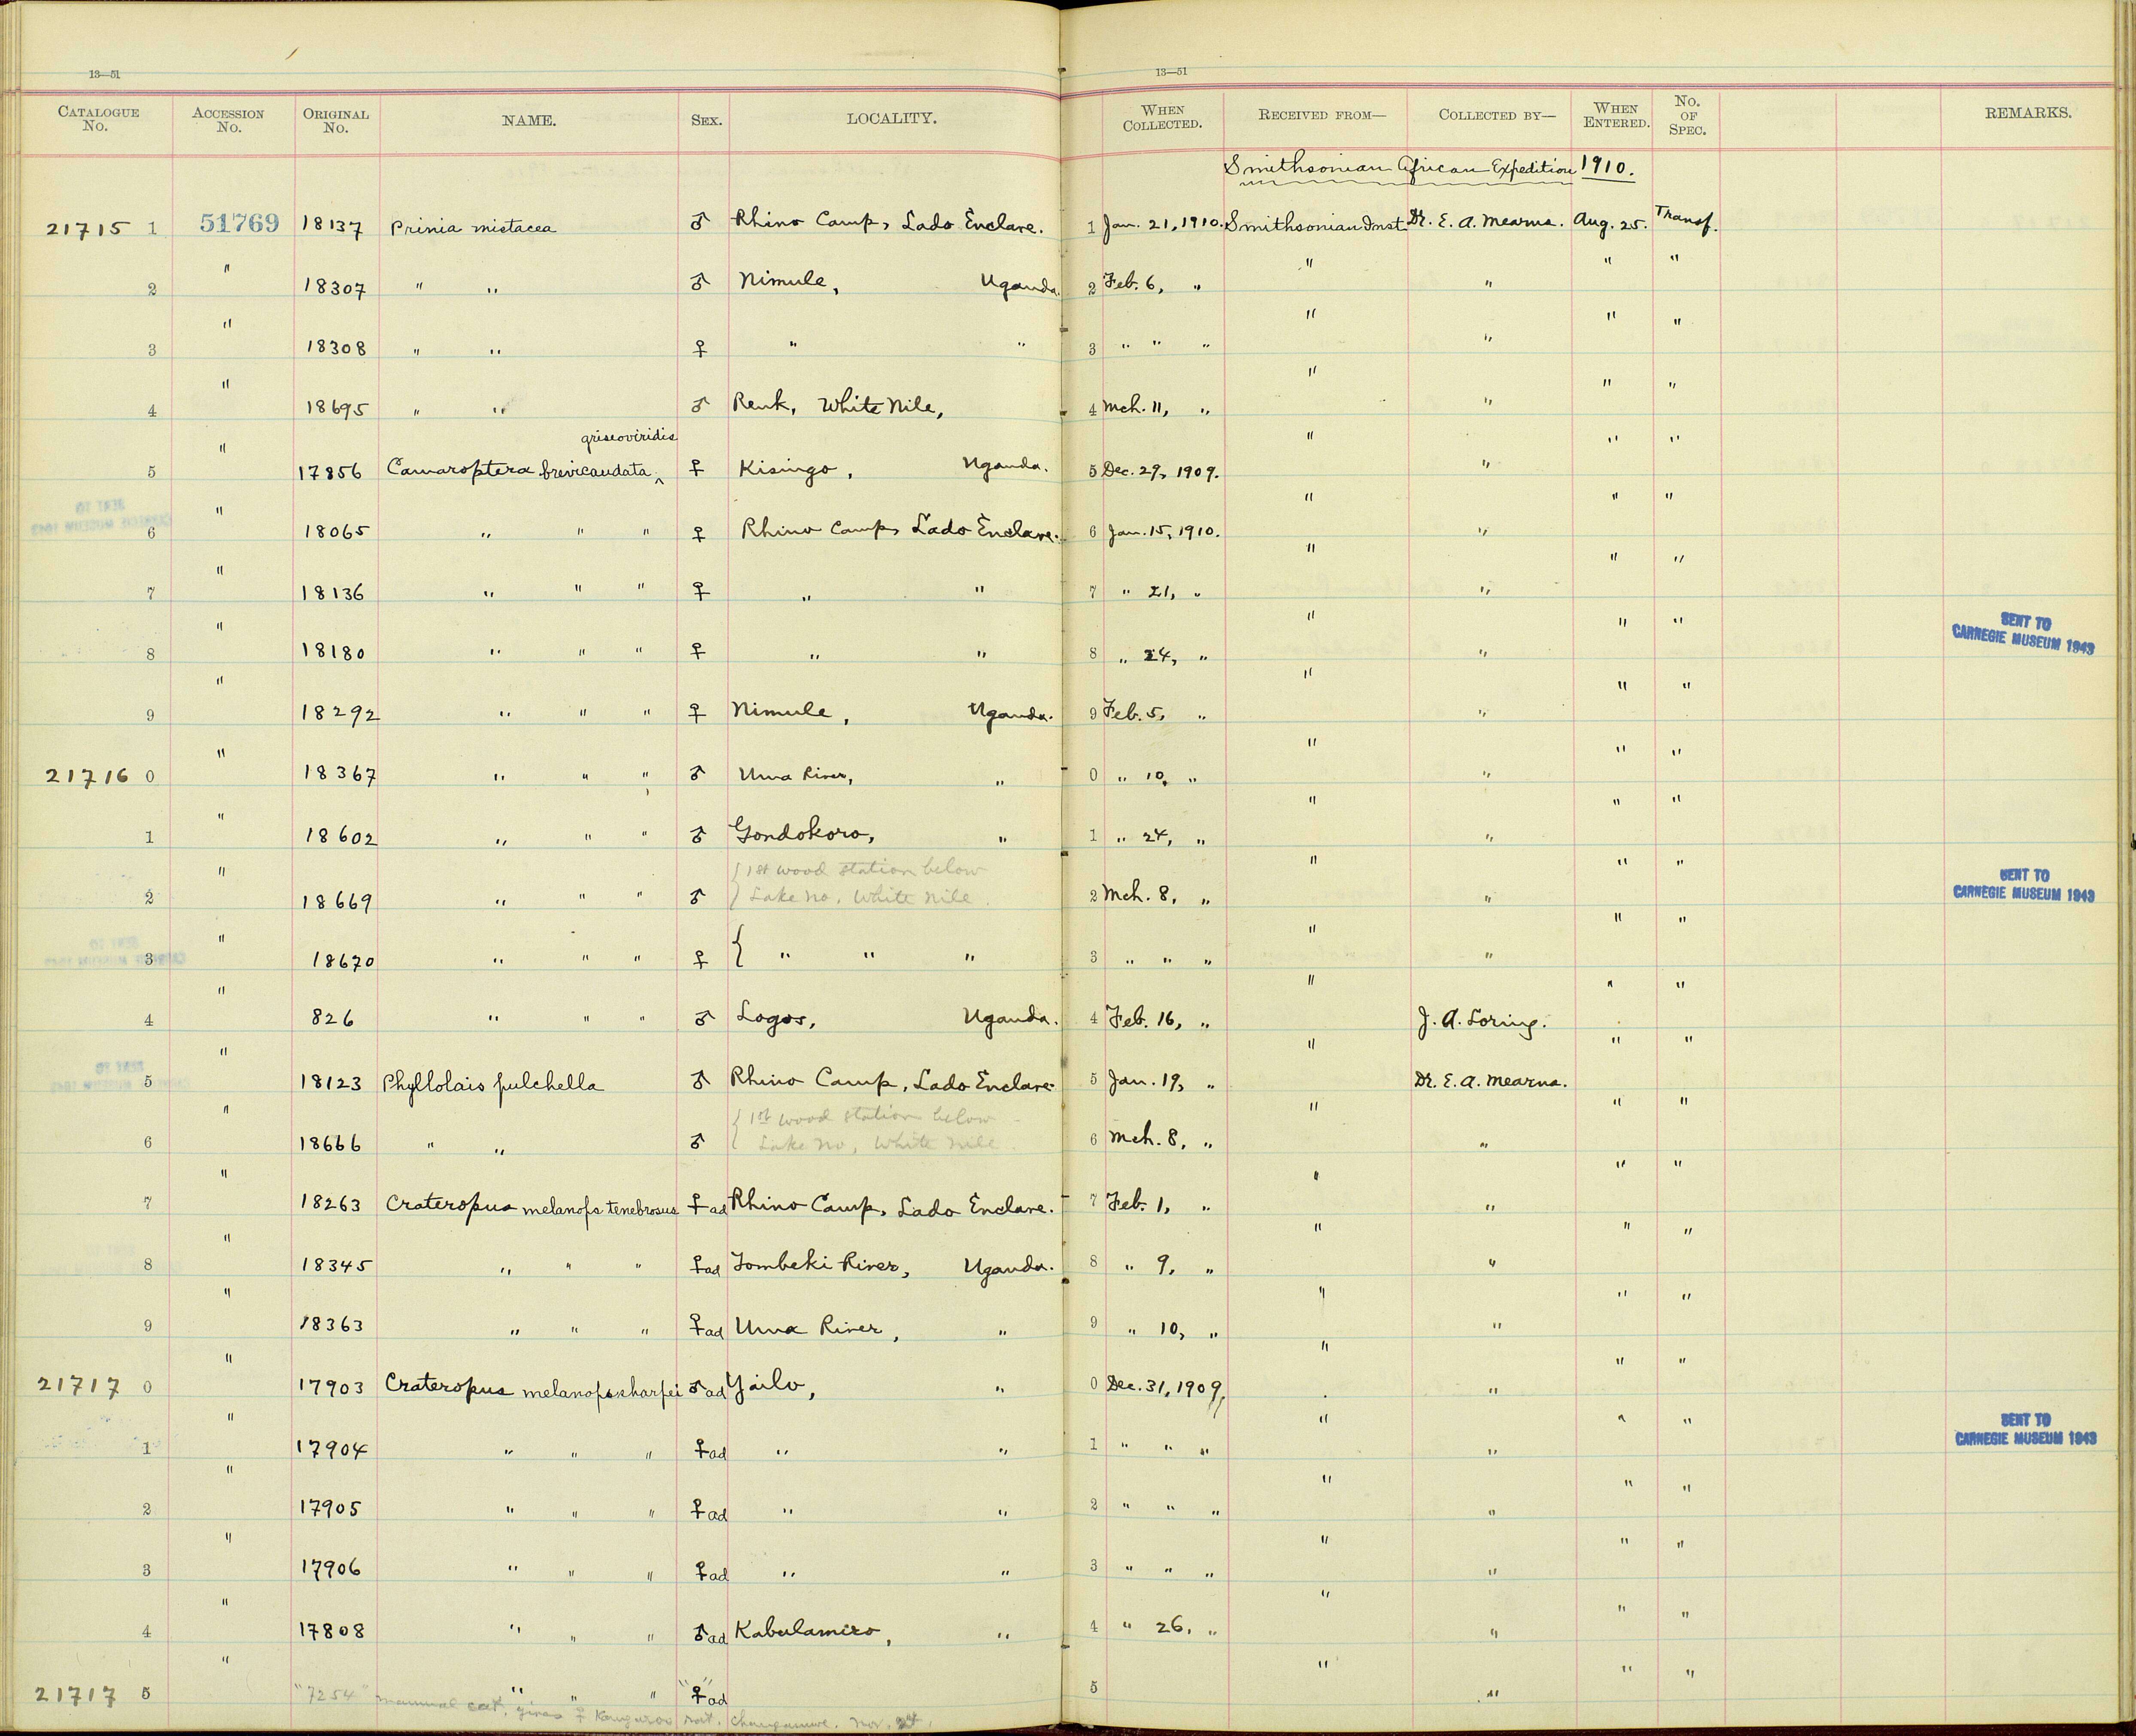 13—51 13—51
CATALOGUE No. ACCESSION No. ORIGINAL No. NAME. SEX. LOCALITY. WHEN COLLECTED. RECEIVED FROM— COLLECTED BY— WHEN ENTERED. No. OF SPEC. REMARKS.
Smithsonian African Expedition 1910.
21715 1 51769 18137 Prinia mistacea ♂ Rhino Camp, Lado Enclave. 1 Jan. 21, 1910. Smithsonian Inst. Dr. E. A. Mearns. Aug. 25. Transf.
2 " 18307 " " ♂ Nimule, Uganda. 2 Feb. 6, " " " " "
3 " 18308 " " ♀ " " 3 " " " " " " "
4 " 18695 " " ♂ Renk, White Nile, 4 Mch. 11, " " " " "
griseoviridis
5 " 17856 Camaroptera brevicaudata ^ ♀ Kisingo, Uganda. 5 Dec. 29, 1909. " " " "
6 " 18065 " " " ♀ Rhino Camp, Lado Enclave. 6 Jan. 15, 1910. " " " "
7 " 18136 " " " ♀ " " 7 " 21, " " " " "
8 " 18180 " " " ♀ " " 8 " 24, " " " " " SENT TO CARNEGIE MUSEUM 1943
9 " 18292 " " " ♀ Nimule, Uganda. 9 Feb. 5, " " " " "
21716 0 " 18367 " " " ♂ Uma River, " 0 " 10, " " " " "
1 " 18602 " " " ♂ Gondokoro, " 1 " 24, " " " " "
{ 1st wood station below
2 " 18669 " " " ♂ Lake No, White Nile. 2 Mch. 8, " " " " " SENT TO CARNEGIE MUSEUM 1943
3 " 18670 " " " ♀ { " " " 3 " " " " " " "
4 " 826 " " " ♂ Logos, Uganda. 4 Feb. 16, " " J. A. Loring. " "
5 " 18123 Phyllolais pulchella ♂ Rhino Camp, Lado Enclave. 5 Jan. 19, " " Dr. E. A. Mearns. " "
{ 1st wood station below
6 " 18666 " " ♂ Lake No, White Nile. 6 Mch. 8, " " " " "
7 " 18263 Crateropus melanops tenebrosus ♀ ad Rhino Camp, Lado Enclave. 7 Feb. 1, " " " " "
8 " 18345 " " " ♀ ad Tombeki River, Uganda. 8 " 9, " " " " "
9 " 18363 " " " ♀ ad Uma River, " 9 " 10, " " " " "
21717 0 " 17903 Crateropus melanops sharpei ♂ ad Yailo, " 0 Dec. 31, 1909. " " " "
1 " 17904 " " " ♀ ad " " 1 " " " " " " " SENT TO CARNEGIE MUSEUM 1943
2 " 17905 " " " ♀ ad " " 2 " " " " " " "
3 " 17906 " " " ♀ ad " " 3 " " " " " " "
4 " 17808 " " " ♂ ad Kabulamiro, " 4 " 26, " " " " "
21717 5 " "7254" " " " "♀" ad 5 " " " "
mammal cat. gives ♀ Kangaroo rat. Changamwe. Nov.